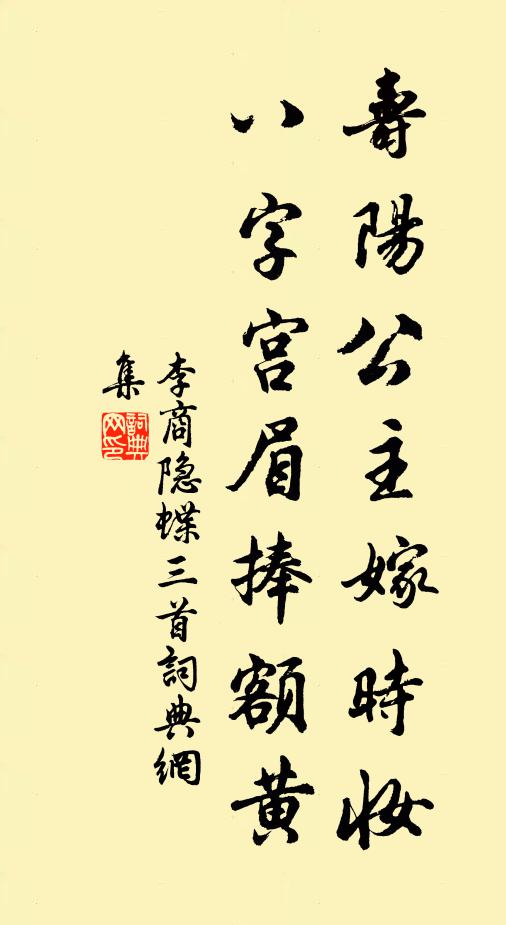 壽陽公主嫁時妝
八字宫眉捧額黄
李商隐蝶三首詞典網
集
詞典
网印